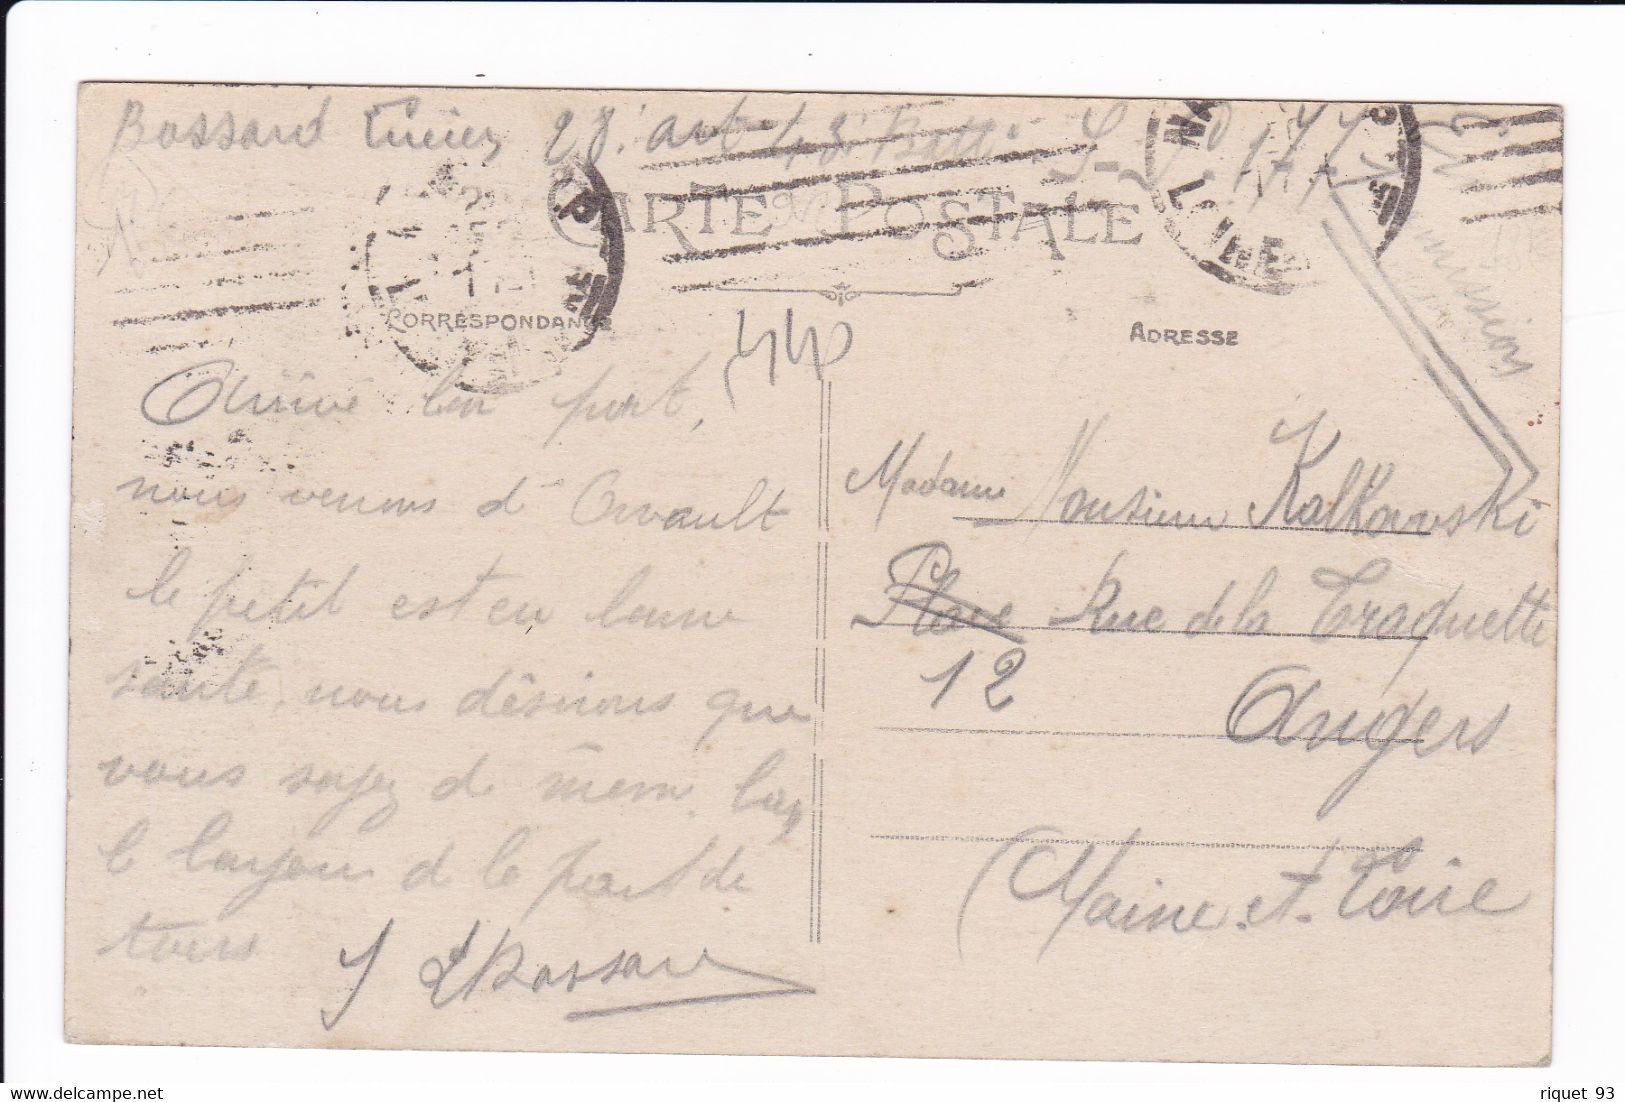 Bossard Lucien 28. art 43. Batti S.P. 177
CARTE POSTALE
CORRESPONDANCE
ADRESSE
44
mission
Arrivé bon port,
nous venons d'Orvault
le petit est en bonne
santé, nous désirons que
vous soyez de même.
le bonjour de la part de
tous
L Bossard
Madame Monsieur Kalkowski
Place Rue de la Traquette
12
Angers
(Maine-et-Loire
riquet 93